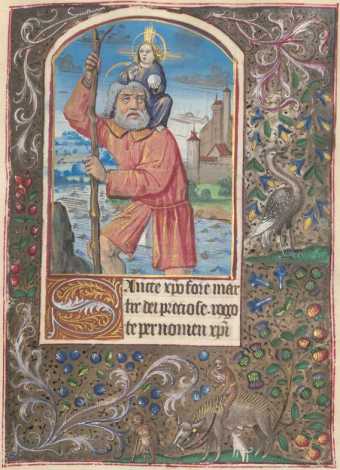 Sancte xpofore mar
tir dei preciose. rogo
te per nomen xpi